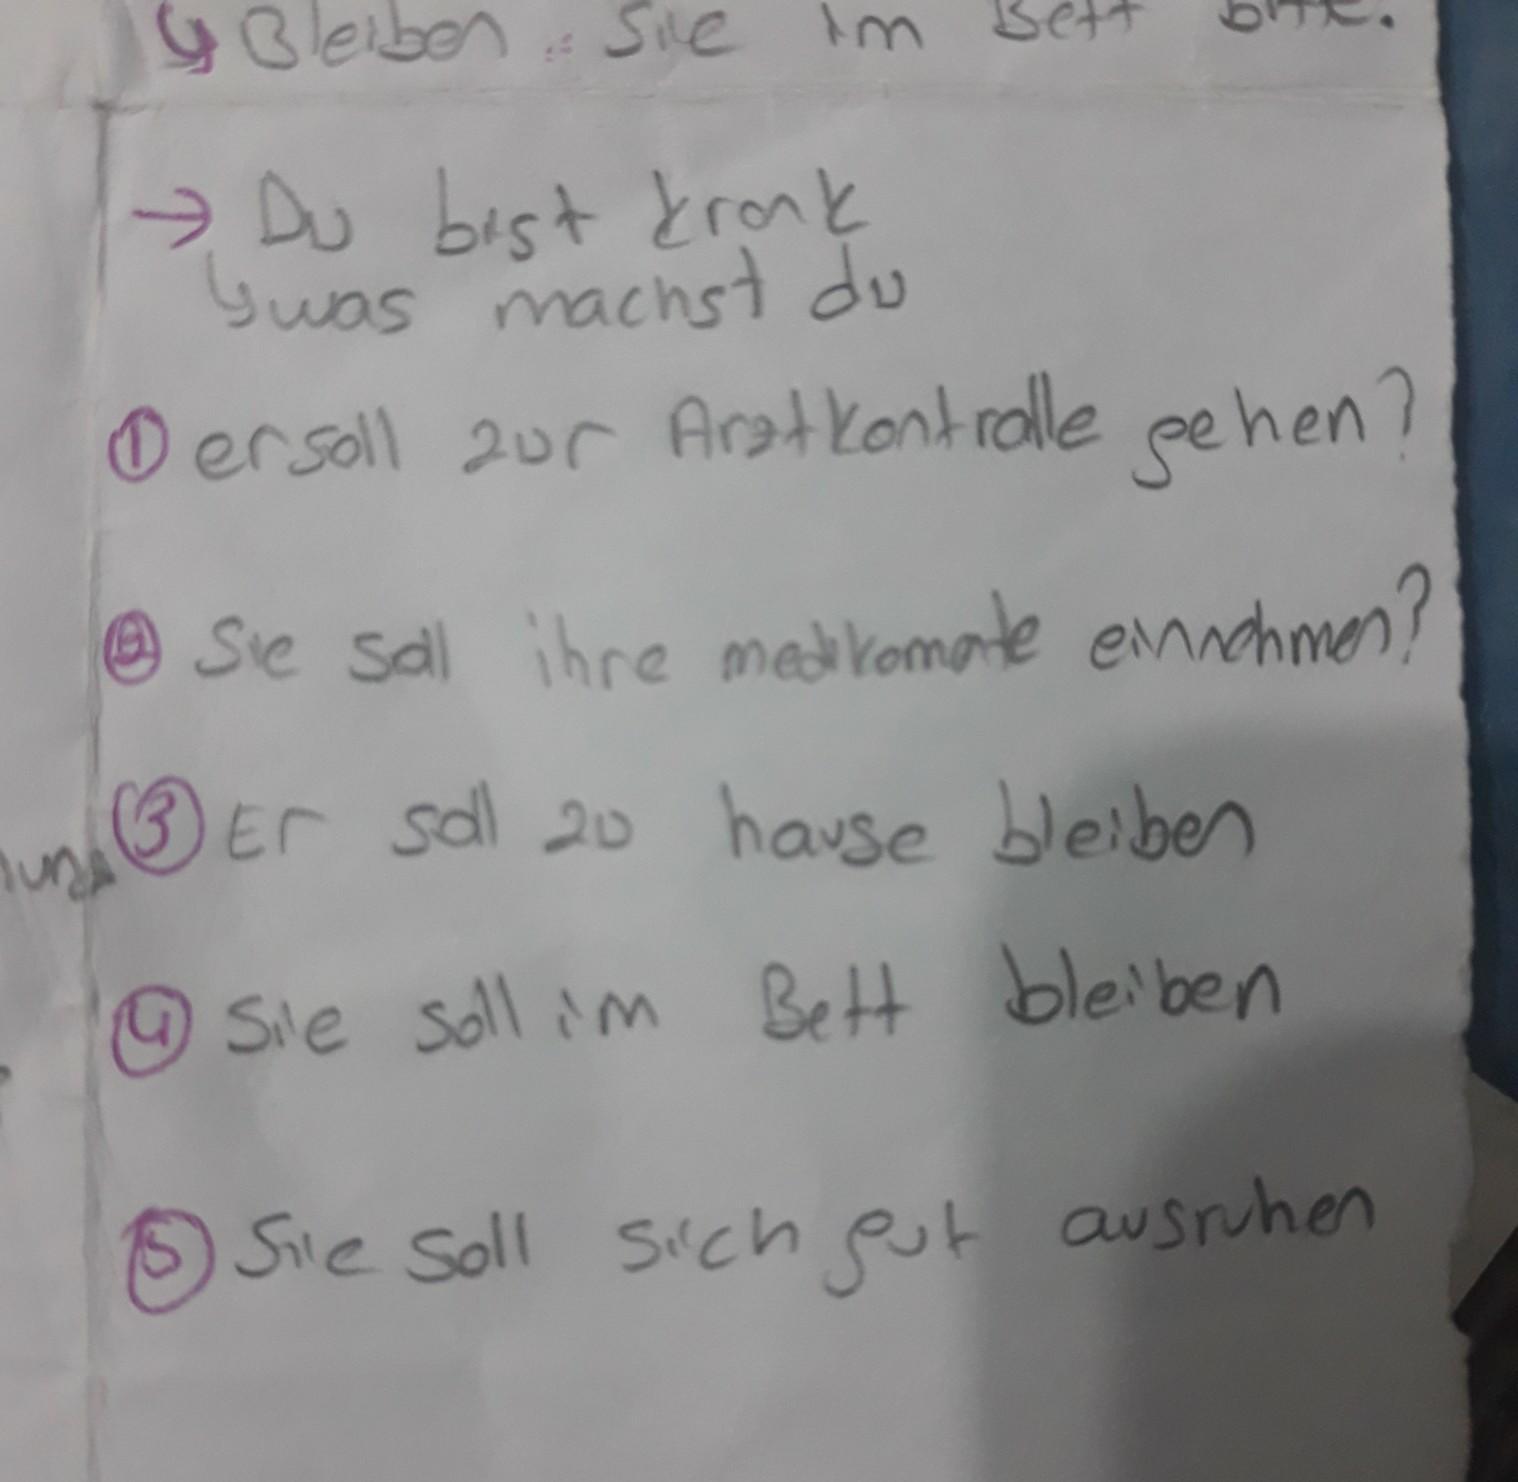 ↳ Bleiben Sie im Bett bitte.
→ Du bist krank
↳ was machst du
① er soll zur Arztkontrolle gehen?
② Sie soll ihre medikamate einnehmen?
③ Er soll zu hause bleiben
④ Sie soll im Bett bleiben
⑤ Sie soll sich gut ausruhen